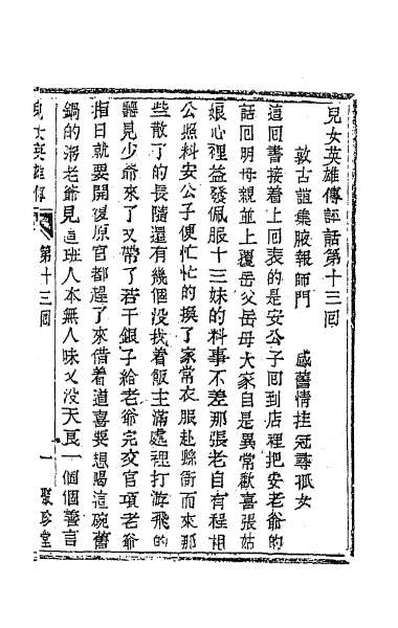 兒女英雄傳評話第十三囘
敦古誼集腋報師門　感舊情挂冠尋孤女
這囘書接着上囘表的是安公子囘到店裡把安老爺的
話囘明母親並上覆岳父岳母大家自是異常歡喜張姑
娘心裡益發佩服十三妹的料事不差那張老自有程相
公照料安公子便忙忙的換了家常衣服赴縣衙而來那
些散了的長隨還有幾個沒找着飯主滿處裡打游飛的
聽見少爺來了又帶了若干銀子給老爺完交官項老爺
指日就要開復原官都趕了來借着道喜要想喝這碗舊
鍋的粥老爺見這班人本無人味又沒天良一個個善言
兒女英雄傳
第十三囘
一
聚珍堂